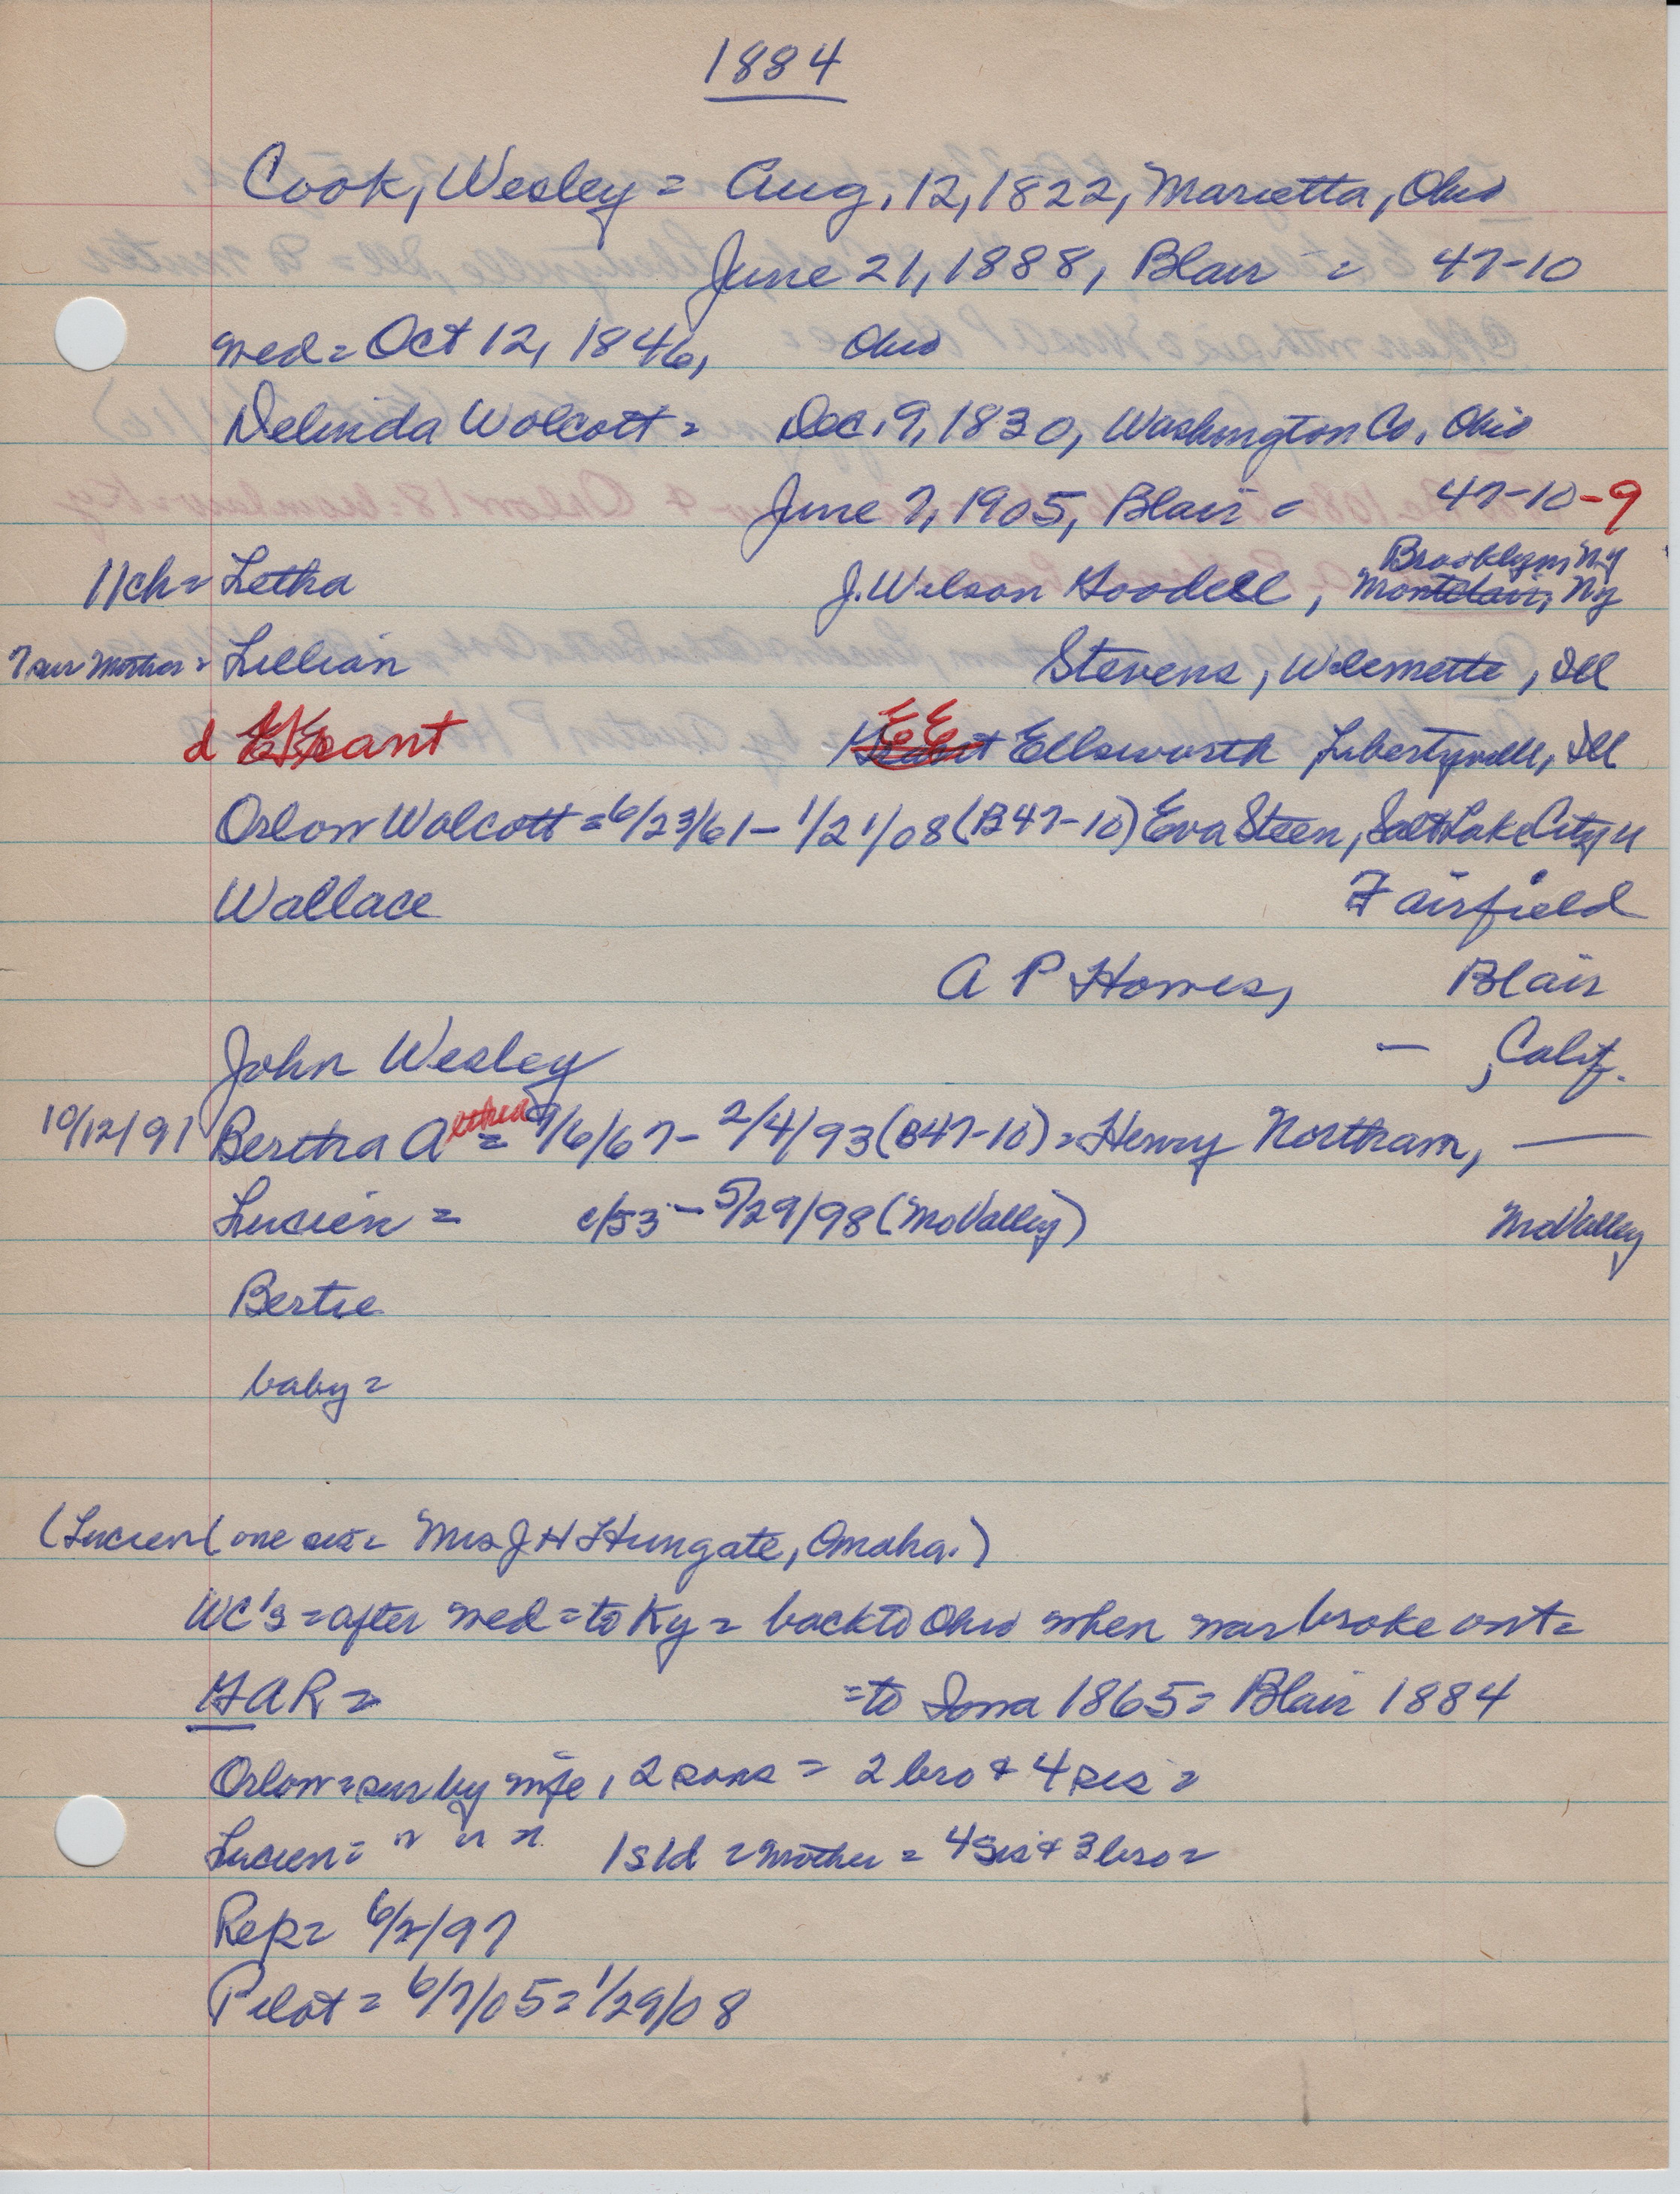 1884
Cook, Wesley = Aug, 12, 1822, Marietta, Ohio
June 21, 1888, Blair = 47-10
wed = Oct 12, 1846, Ohio
Delinda Wolcott = Dec. 9, 1830, Washington Co. Ohio
June 7, 1905, Blair = 47-10-9
Brooklyn, NY
11ch = Letha J. Wilson Goodell, Montclair, NY
7 sur Mother = Lillian Stevens, Wilemette, Ill
d Grant E E Ellsworth Libertyville, Ill
Orlow Wolcott = 6/23/61 - 1/21/08 (B47-10) Eva Steen, Salt Lake City U
Wallace Fairfield
A P Howes, Blair
John Wesley - , Calif.
10/12/91 Bertha A = 9/6/67 - 2/4/93 (B47-10) = Henry Northram, —
Lucien = c/53 - 5/29/98 (MoValley) MoValley
Bertie
baby =
(Lucien (one sis = Mrs J H Hungate, Omaha.)
WC's = after wed = to Ky = back to Ohio when war broke out =
GAR = = to Iowa 1865 = Blair 1884
Orlow = sur by wife, 2 sons = 2 bro & 4 sis =
Lucien = " " " 1s 1d = Mother = 4 sis & 3 bro =
Rep = 6/2/97
Pilot = 6/7/05 = 1/29/08